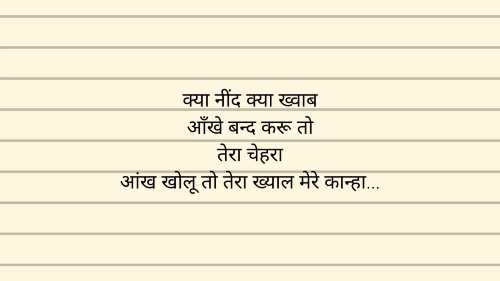 क्या नींद क्या ख्वाब
आँखे बन्द करू तो
तेरा चेहरा
आंख खोलू तो तेरा ख्याल मेरे कान्हा...